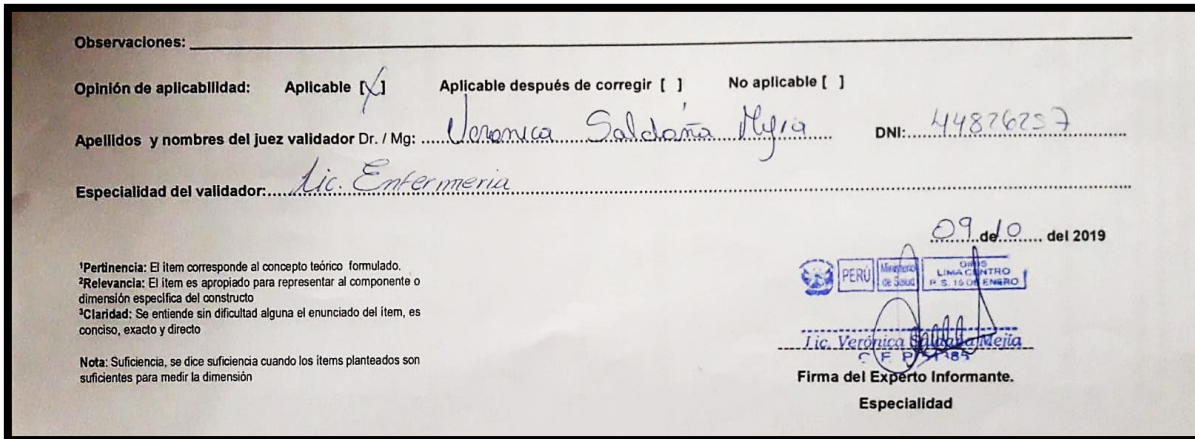 Observaciones:
Opinión de aplicabilidad: Aplicable [X] Aplicable después de corregir [ ] No aplicable [ ]
Apellidos y nombres del juez validador Dr. / Mg: Veronica Saldaña Mejia DNI: 44826257
Especialidad del validador: Lic. Enfermeria
09 de 10 del 2019
¹Pertinencia: El ítem corresponde al concepto teórico formulado.
²Relevancia: El ítem es apropiado para representar al componente o
dimensión específica del constructo
³Claridad: Se entiende sin dificultad alguna el enunciado del ítem, es
conciso, exacto y directo
Nota: Suficiencia, se dice suficiencia cuando los ítems planteados son
suficientes para medir la dimensión
PERÚ Ministerio de Salud
LIMA CENTRO
P. S. 15 DE ENERO
Lic. Verónica Saldaña Mejía
C E P
Firma del Experto Informante.
Especialidad